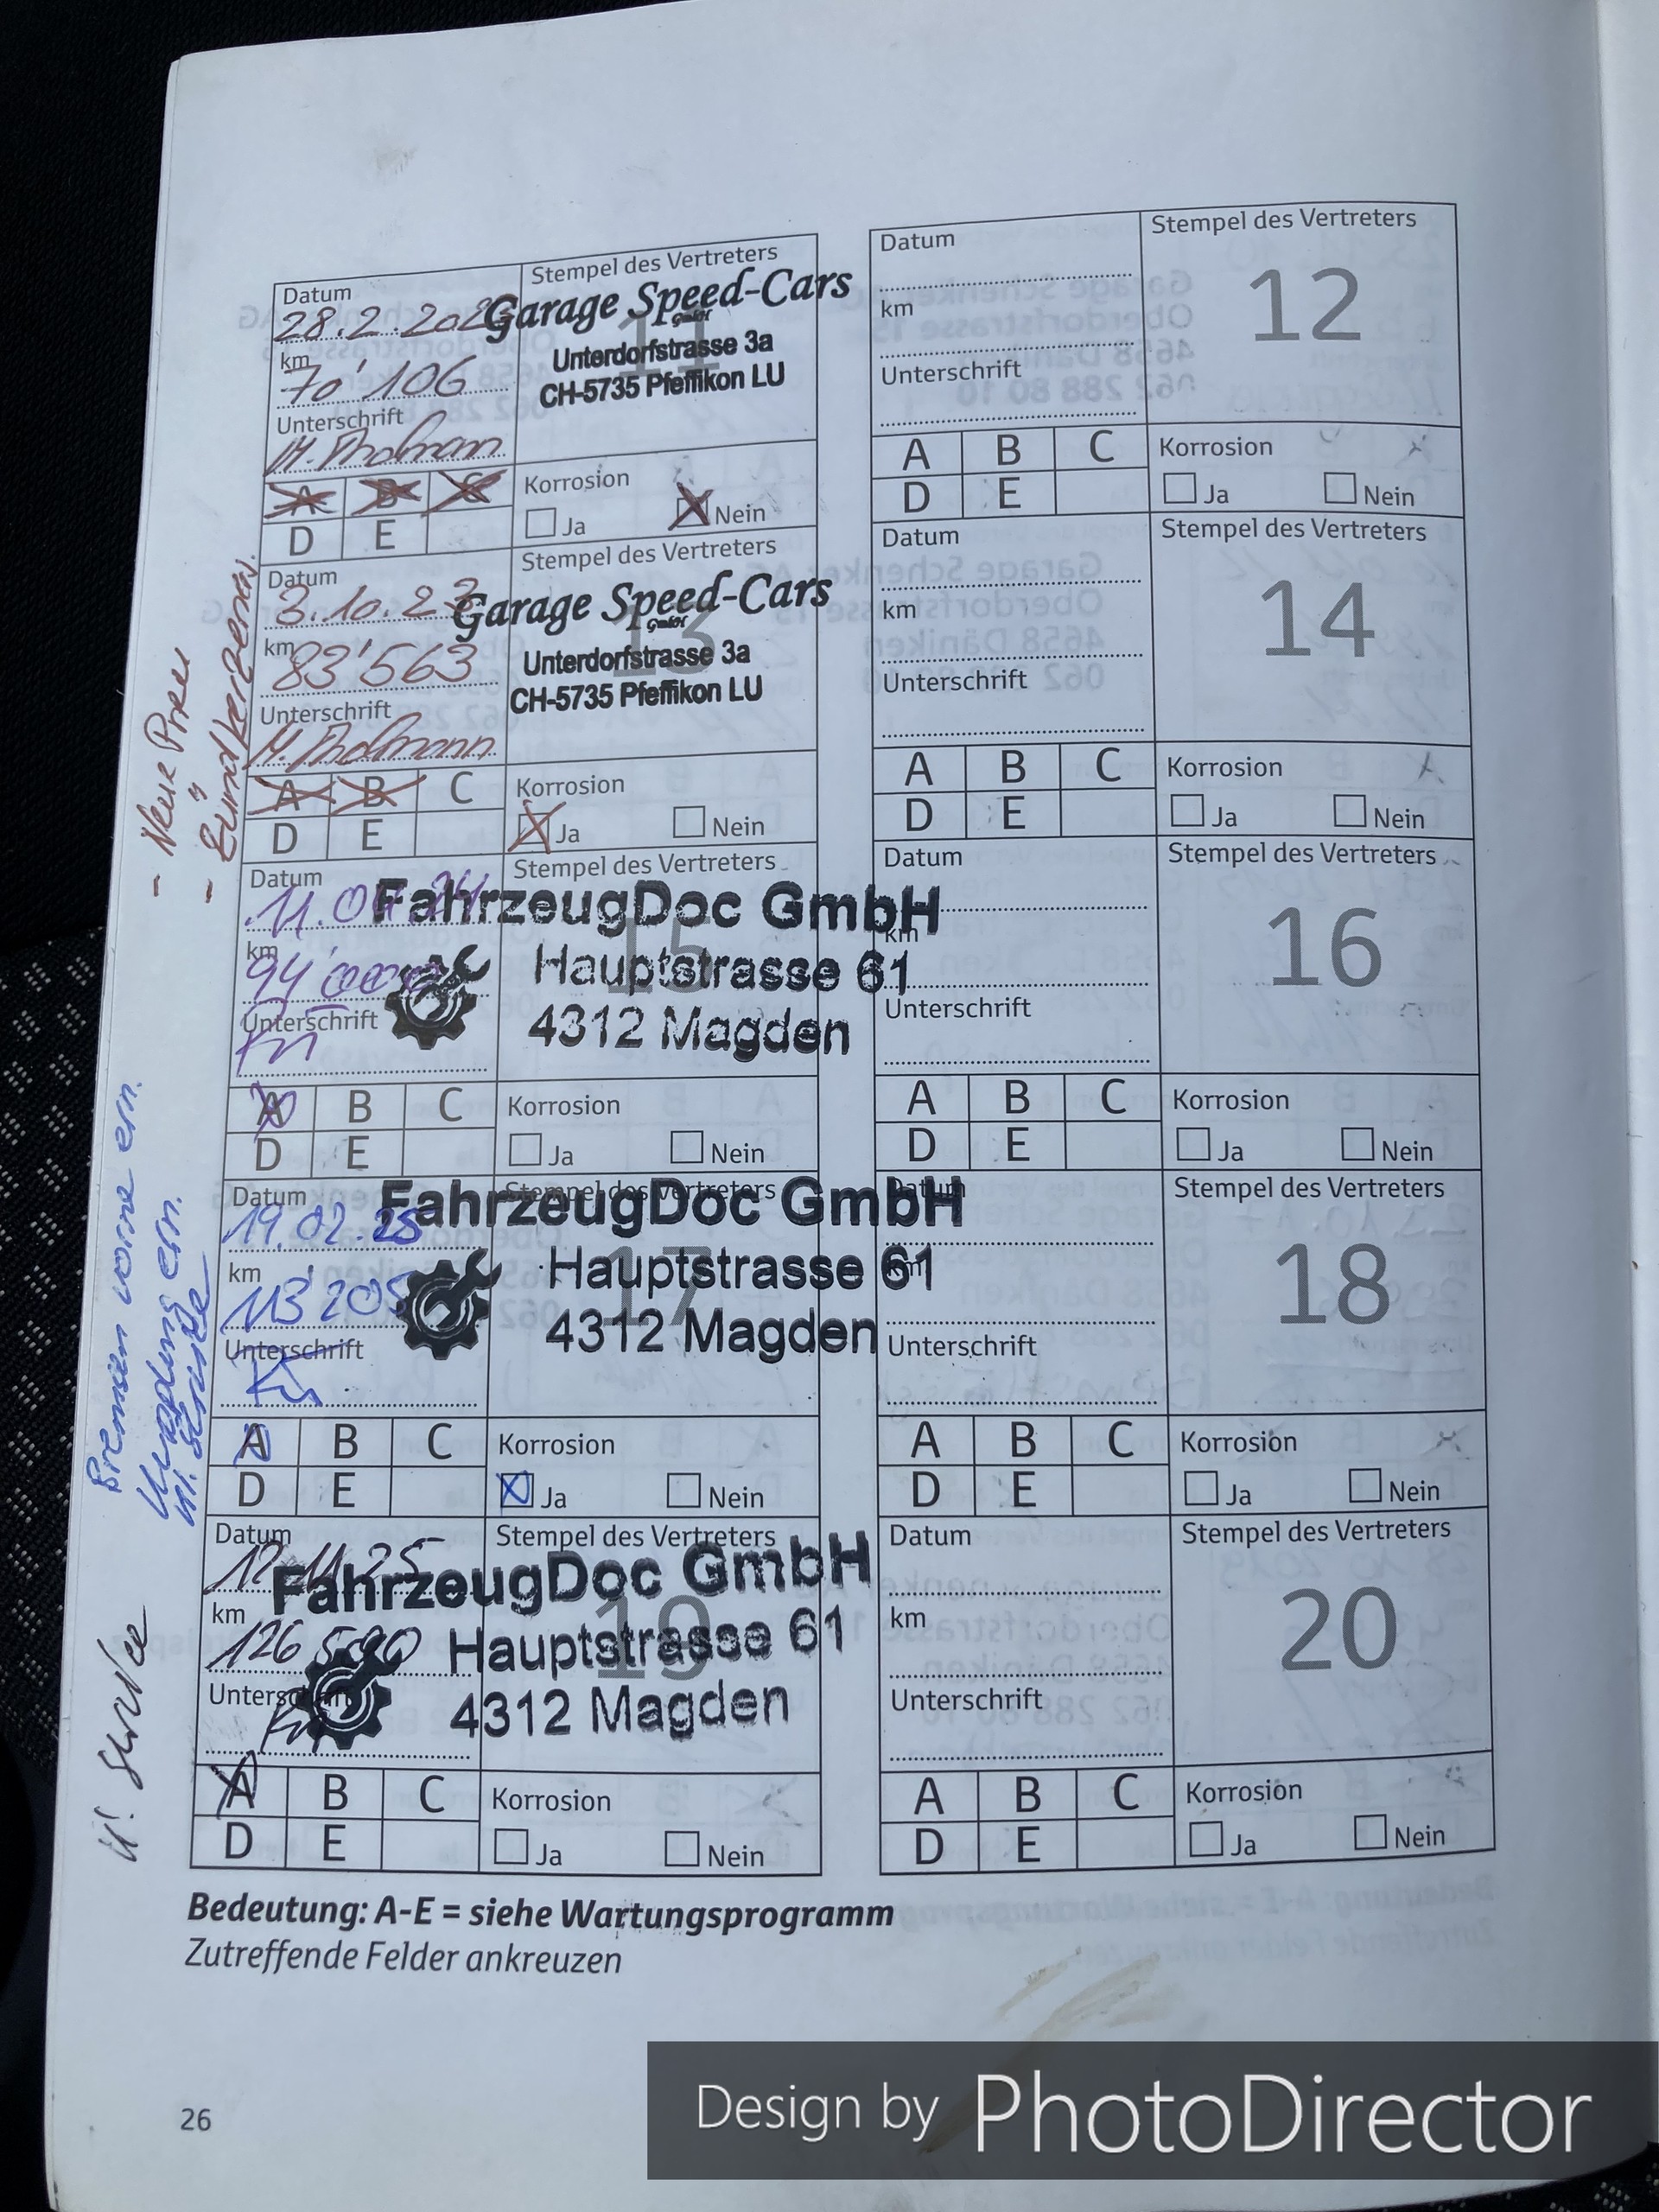 Datum
28.2.202
km
70'106
Unterschrift
Stempel des Vertreters
11
Garage Speed-Cars
GmbH
Unterdorfstrasse 3a
CH-5735 Pfeffikon LU
A B C
D E
Korrosion
Ja Nein
Datum
km
Unterschrift
Stempel des Vertreters
12
A B C
D E
Korrosion
Ja Nein
- Neue Pneu
- Zündkerzen
Datum
3.10.23
km
83'563
Unterschrift
Stempel des Vertreters
13
Garage Speed-Cars
GmbH
Unterdorfstrasse 3a
CH-5735 Pfeffikon LU
A B C
D E
Korrosion
Ja Nein
Datum
km
Unterschrift
Stempel des Vertreters
14
A B C
D E
Korrosion
Ja Nein
Datum
11.04.24
km
94'000
Unterschrift
Stempel des Vertreters
15
FahrzeugDoc GmbH
Hauptstrasse 61
4312 Magden
A B C
D E
Korrosion
Ja Nein
Datum
km
Unterschrift
Stempel des Vertreters
16
A B C
D E
Korrosion
Ja Nein
Bremsen vorne ern.
kl. Service
Datum
19.02.25
km
113'205
Unterschrift
Stempel des Vertreters
17
FahrzeugDoc GmbH
Hauptstrasse 61
4312 Magden
A B C
D E
Korrosion
Ja Nein
Datum
km
Unterschrift
Stempel des Vertreters
18
A B C
D E
Korrosion
Ja Nein
kl. Service
Datum
12.11.25
km
126
Unterschrift
Stempel des Vertreters
19
FahrzeugDoc GmbH
Hauptstrasse 61
4312 Magden
A B C
D E
Korrosion
Ja Nein
Datum
km
Unterschrift
Stempel des Vertreters
20
A B C
D E
Korrosion
Ja Nein
Bedeutung: A-E = siehe Wartungsprogramm
Zutreffende Felder ankreuzen
26
Design by PhotoDirector